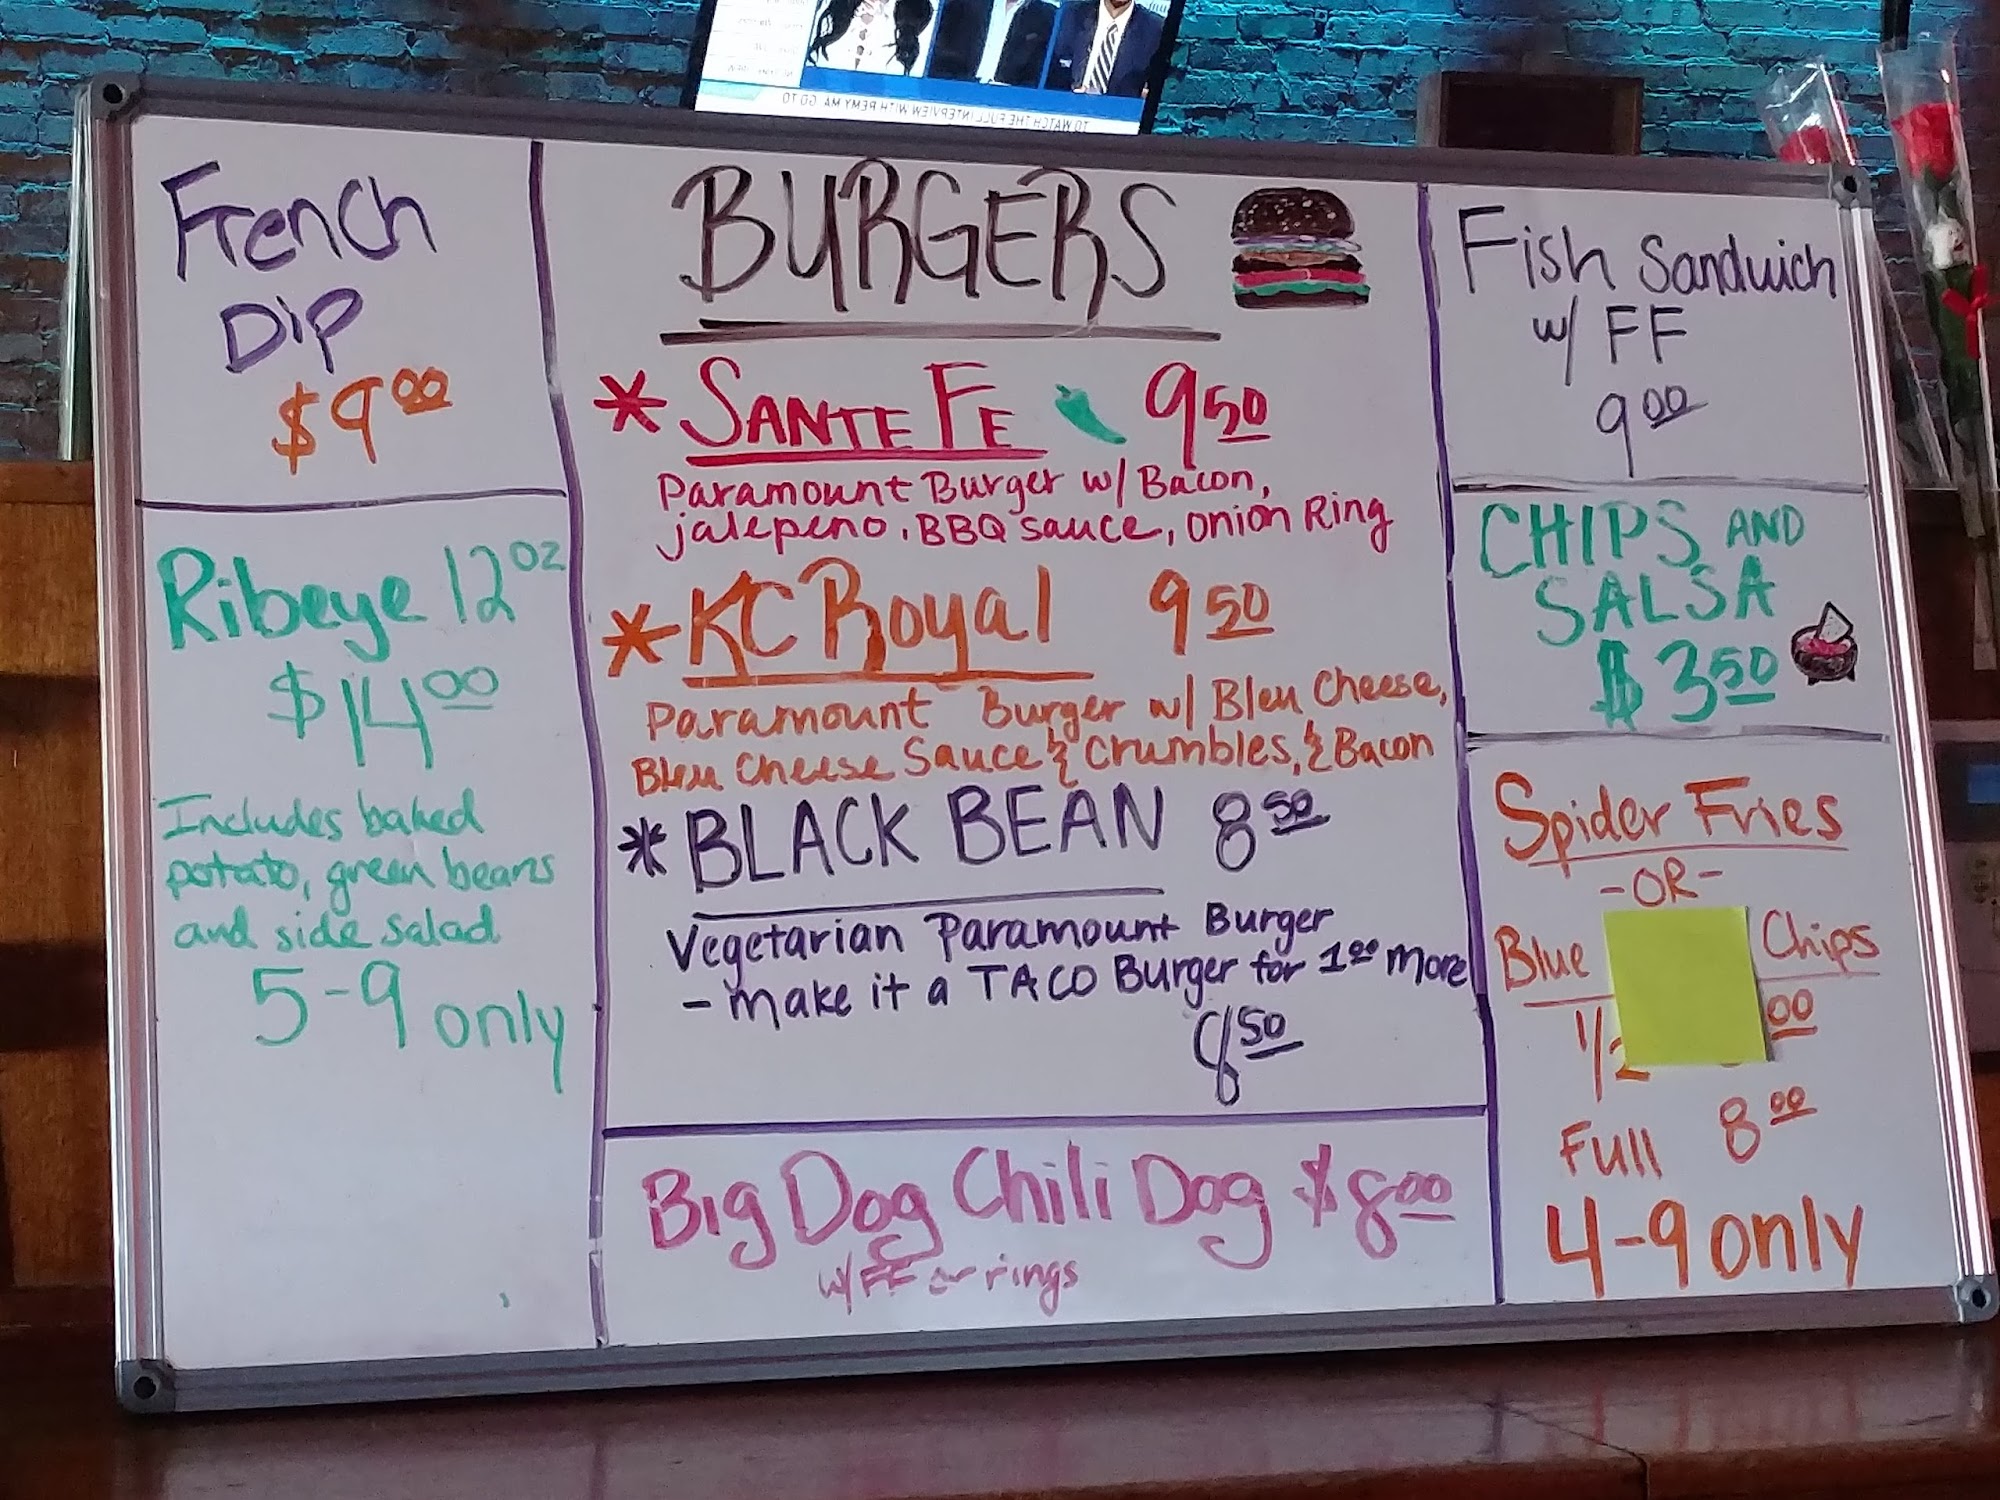 French
Dip
$9.00
Ribeye 12oz
$14.00
Includes baked
potato, green beans
and side salad
5-9 only
BURGERS
* SANTE FE 9.50
Paramount Burger w/ Bacon,
jalepeno, BBQ sauce, onion Ring
* KC Royal 9.50
Paramount Burger w/ Bleu Cheese,
Bleu Cheese Sauce & Crumbles, & Bacon
* BLACK BEAN 8.50
Vegetarian Paramount Burger
- make it a TACO Burger for 1.00 more
8.50
Big Dog Chili Dog $8.00
w/ FF or rings
Fish Sandwich
w/ FF
9.00
CHIPS AND
SALSA
$3.50
Spider Fries
-OR-
Blue Chips
1/2 00
Full 8.00
4-9 only
TO WATCH THE FULL INTERVIEW WITH REMY MA, GO TO